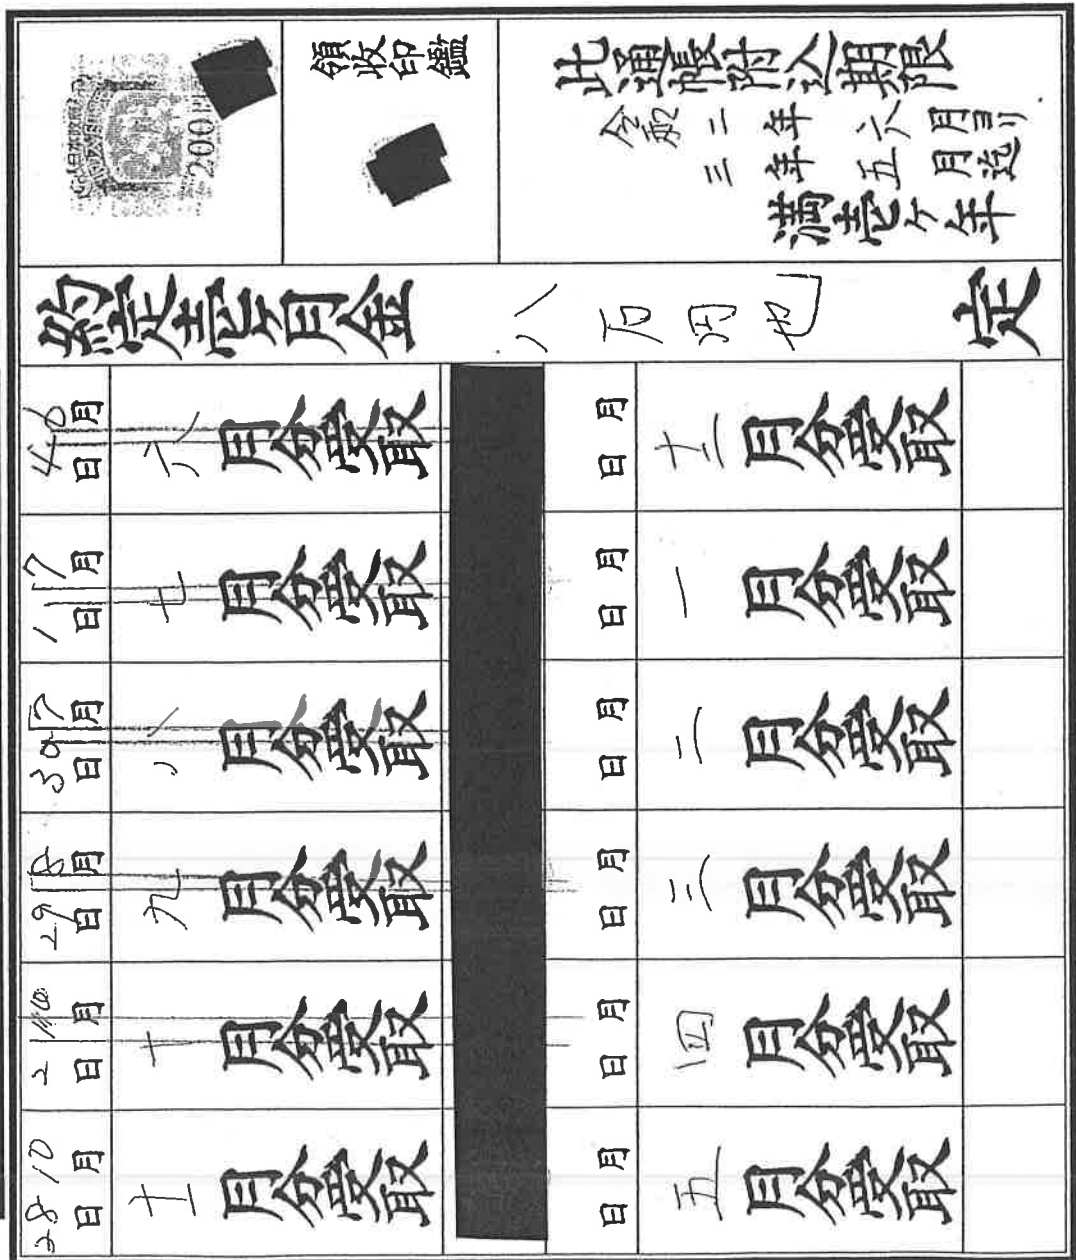 200円
領收印鑑
此通帳附込期限
令和二年六月ヨリ
三年五月迄
満壱ヶ年
約定壱ヶ月金八万円也定
6月4日 六月分受取
7月1日 七月分受取
7月30日 八月分受取
8月29日 九月分受取
10月2日 十月分受取
10月28日 十一月分受取
月日 十二月分受取
月日 一月分受取
月日 二月分受取
月日 三月分受取
月日 四月分受取
月日 五月分受取